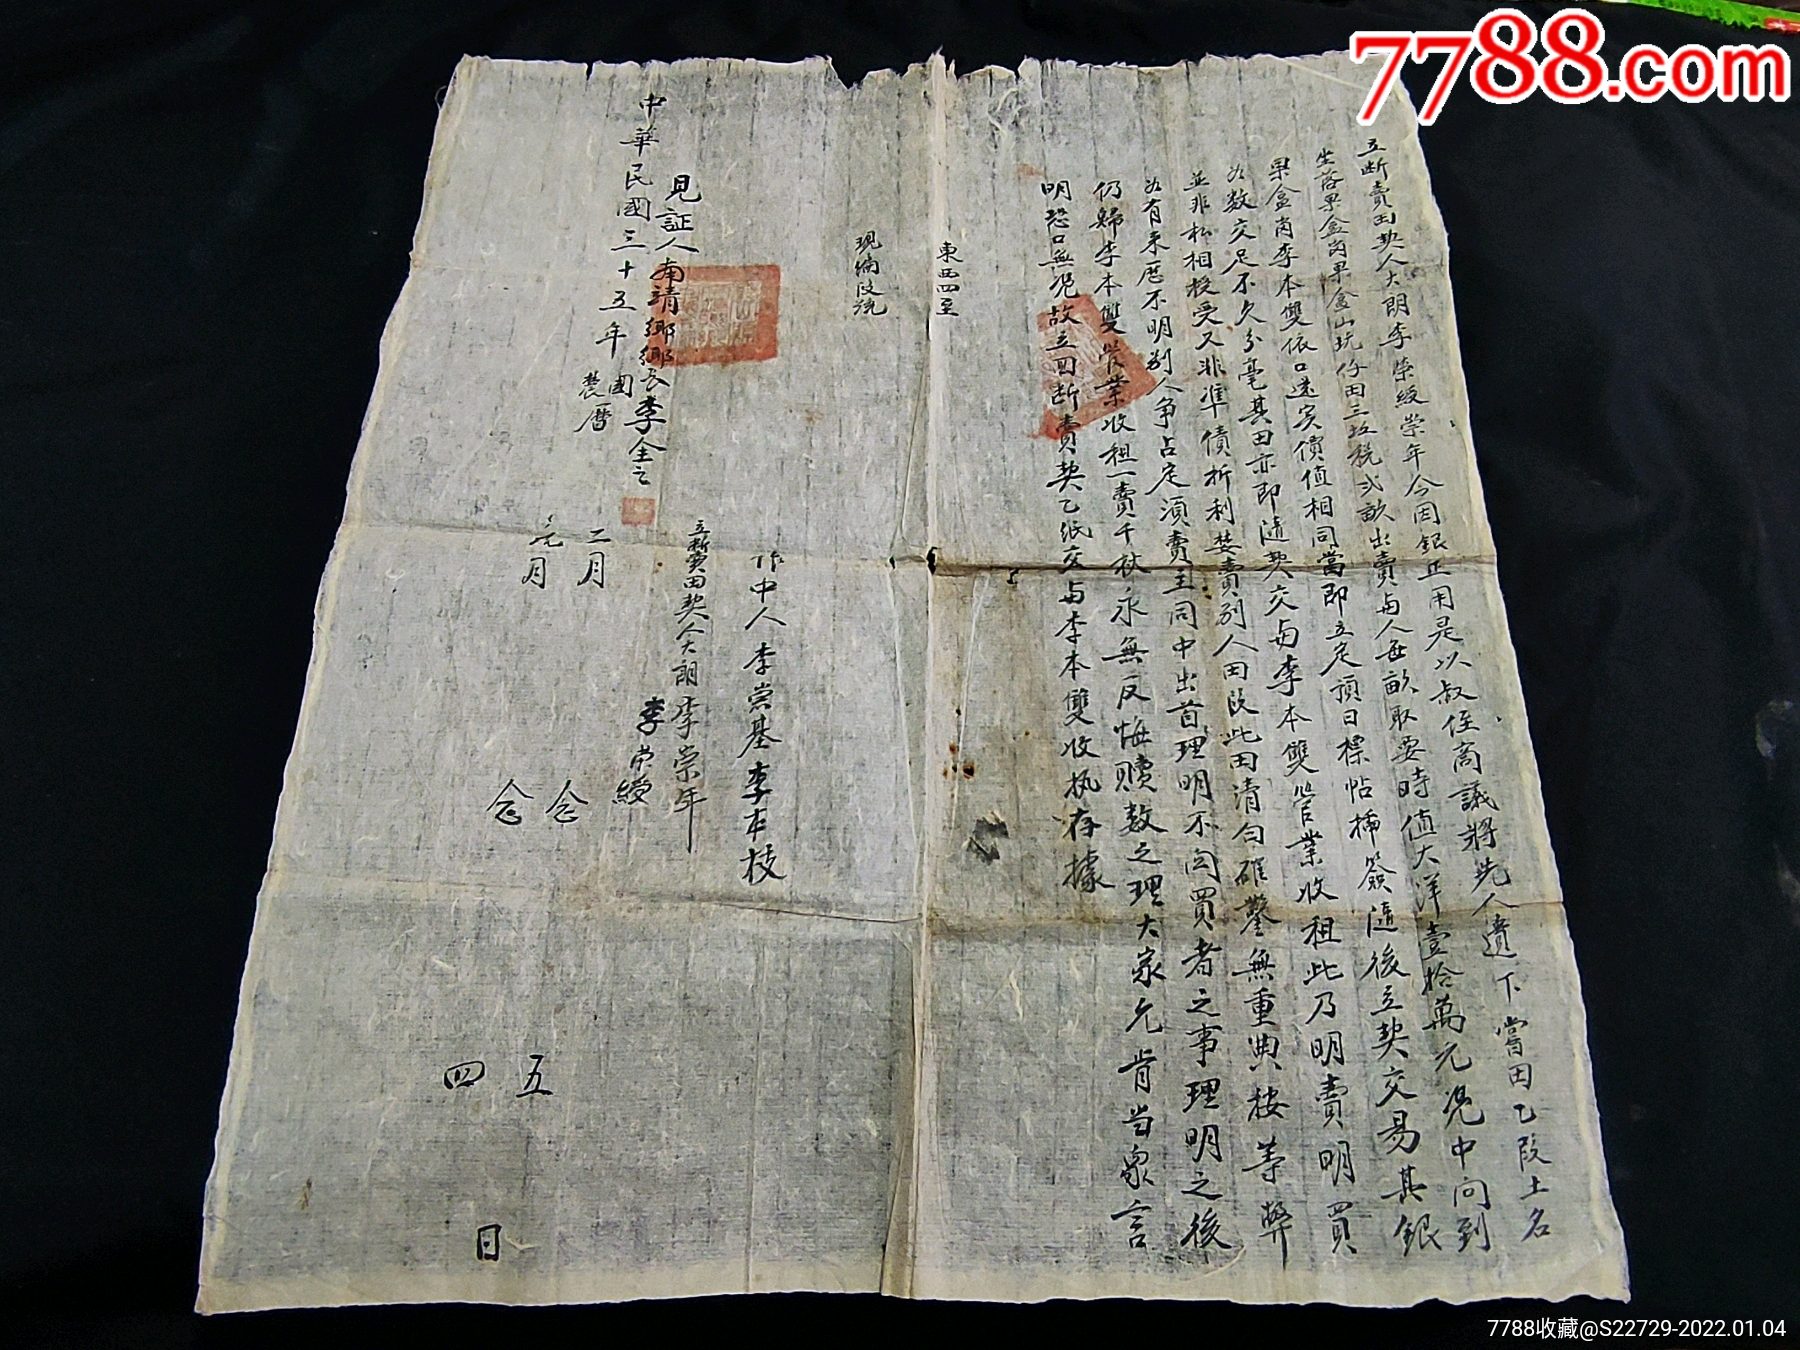 7788.com
立断賣田契人大朗李崇綬崇年今因銀正用是以叔侄商議將先人遺下嘗田乙段土名
坐落果盒崗果盒山坑仔田三坵税弍畝出賣與人每畝取要時值大洋壹拾萬元凂中问到
果盒崗李本雙依口還实價值相同當即立定頂日標帖揷簽隨後立契交易其銀
數交足不欠分毫其田亦即隨契交與李本雙管業收租此乃明賣明買
並非私相授受又非準債折利婪賣別人田段此田清白確鑿無重典按等弊
有来歷不明别人争占定須賣主同中出首理明不関買者之事理明之後
仍歸李本雙管業收租一賣千秋永無反悔贖数之理大家允肯当衆言
明恐口無凴故立囬断賣契乙纸交與李本雙收执存據
東西四至
現编段號
作中人李崇基李本枝
見証人南靖鄉鄉長李全之
立断賣田契人大朗李崇年
李崇綬
中華民國三十五年國農曆
二月念五
元月念四
日
7788收藏@S22729-2022.01.04